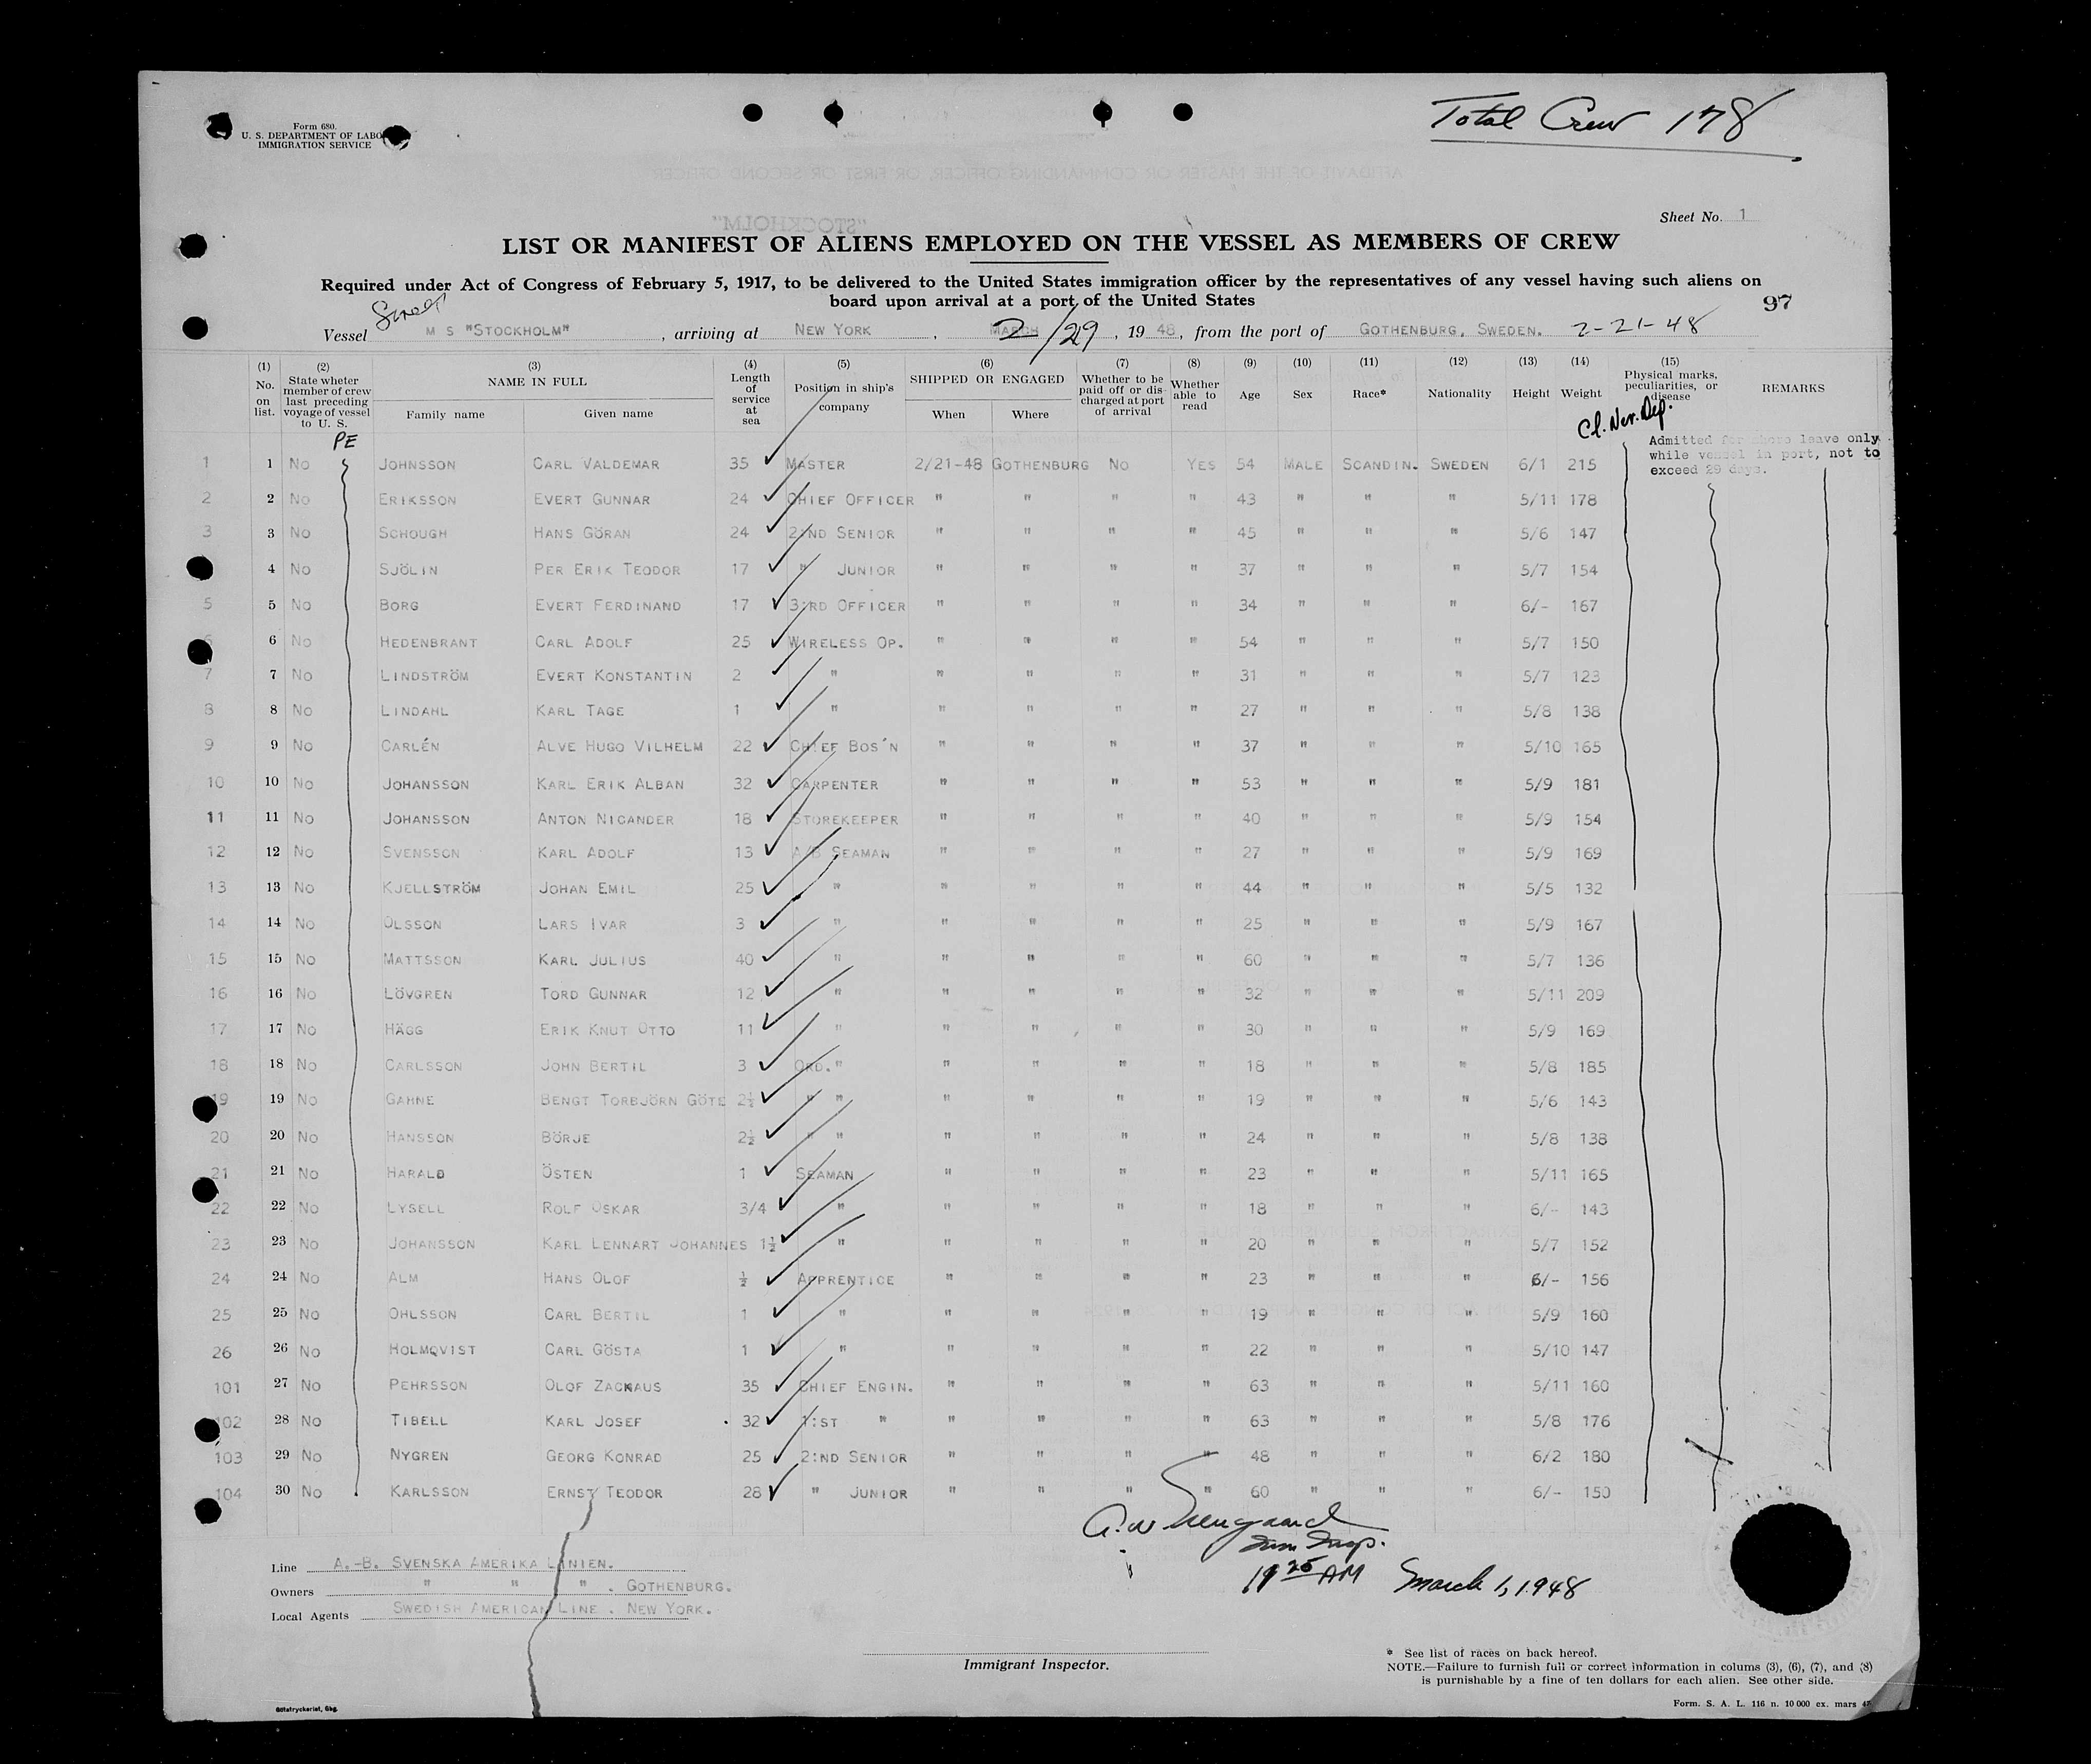 Total Crew 178
Form 680.
U. S. DEPARTMENT OF LABO
IMMIGRATION SERVICE
Sheet No. 1
LIST OR MANIFEST OF ALIENS EMPLOYED ON THE VESSEL AS MEMBERS OF CREW
Required under Act of Congress of February 5, 1917, to be delivered to the United States immigration officer by the representatives of any vessel having such aliens on
board upon arrival at a port of the United States
97
Vessel M S "STOCKHOLM", arriving at NEW YORK, MARCH 2/29, 1948, from the port of GOTHENBURG, SWEDEN. 2-21-48
(1) No. on list. (2) State wheter member of crew last preceding voyage of vessel to U. S. (3) NAME IN FULL Family name Given name (4) Length of service at sea (5) Position in ship's company (6) SHIPPED OR ENGAGED When Where (7) Whether to be paid off or discharged at port of arrival (8) Whether able to read (9) Age (10) Sex (11) Race* (12) Nationality (13) Height (14) Weight (15) Physical marks, peculiarities, or disease REMARKS
PE
Admitted for shore leave only while vessel in port, not to exceed 29 days.
1 1 NO JOHNSSON CARL VALDEMAR 35 MASTER 2/21-48 GOTHENBURG NO YES 54 MALE SCANDIN. SWEDEN 6/1 215
2 2 NO ERIKSSON EVERT GUNNAR 24 CHIEF OFFICER " " " " 43 " " " 5/11 178
3 3 NO SCHOUGH HANS GÖRAN 24 2:ND SENIOR " " " " 45 " " " 5/6 147
4 NO SJÖLIN PER ERIK TEODOR 17 " JUNIOR " " " " 37 " " " 5/7 154
5 5 NO BORG EVERT FERDINAND 17 3:RD OFFICER " " " " 34 " " " 6/- 167
6 6 NO HEDENBRANT CARL ADOLF 25 WIRELESS OP. " " " " 54 " " " 5/7 150
7 7 NO LINDSTRÖM EVERT KONSTANTIN 2 " " " " " 31 " " " 5/7 123
8 8 NO LINDAHL KARL TAGE 1 " " " " " 27 " " " 5/8 138
9 9 NO CARLÉN ALVE HUGO VILHELM 22 CHIEF BOS'N " " " " 37 " " " 5/10 165
10 10 NO JOHANSSON KARL ERIK ALBAN 32 CARPENTER " " " " 53 " " " 5/9 181
11 11 NO JOHANSSON ANTON NICANDER 18 STOREKEEPER " " " " 40 " " " 5/9 154
12 12 NO SVENSSON KARL ADOLF 13 A/B SEAMAN " " " " 27 " " " 5/9 169
13 13 NO KJELLSTRÖM JOHAN EMIL 25 " " " " " 44 " " " 5/5 132
14 14 NO OLSSON LARS IVAR 3 " " " " " 25 " " " 5/9 167
15 15 NO MATTSSON KARL JULIUS 40 " " " " " 60 " " " 5/7 136
16 16 NO LÖVGREN TORD GUNNAR 12 " " " " " 32 " " " 5/11 209
17 17 NO HÄGG ERIK KNUT OTTO 11 " " " " " 30 " " " 5/9 169
18 18 NO CARLSSON JOHN BERTIL 3 ORD. " " " " " 18 " " " 5/8 185
19 19 NO GAHNE BENGT TORBJÖRN GÖTE 2½ " " " " " " 19 " " " 5/6 143
20 20 NO HANSSON BÖRJE 2½ " " " " " " 24 " " " 5/8 138
21 21 NO HARALD ÖSTEN 1 SEAMAN " " " " 23 " " " 5/11 165
22 22 NO LYSELL ROLF OSKAR 3/4 " " " " " 18 " " " 6/- 143
23 23 NO JOHANSSON KARL LENNART JOHANNES 1½ " " " " " 20 " " " 5/7 152
24 24 NO ALM HANS OLOF ½ APPRENTICE " " " " 23 " " " 6/- 156
25 25 NO OHLSSON CARL BERTIL 1 " " " " " 19 " " " 5/9 160
26 26 NO HOLMQVIST CARL GÖSTA 1 " " " " " 22 " " " 5/10 147
101 27 NO PEHRSSON OLOF ZACKAUS 35 CHIEF ENGIN. " " " " 63 " " " 5/11 160
102 28 NO TIBELL KARL JOSEF 32 1:ST " " " " " 63 " " " 5/8 176
103 29 NO NYGREN GEORG KONRAD 25 2:ND SENIOR " " " " 48 " " " 6/2 180
104 30 NO KARLSSON ERNST TEODOR 28 " JUNIOR " " " " 60 " " " 6/- 150
Imm Insp.
March 1, 1948
Line A.-B. SVENSKA AMERIKA LINIEN.
Owners " " " . GOTHENBURG.
Local Agents SWEDISH AMERICAN LINE . NEW YORK.
Immigrant Inspector.
* See list of races on back hereof.
NOTE.—Failure to furnish full or correct information in colums (3), (6), (7), and (8)
is punishable by a fine of ten dollars for each alien. See other side.
Götatryckeriet, Gbg.
Form. S. A. L. 116 n. 10 000 ex. mars 47